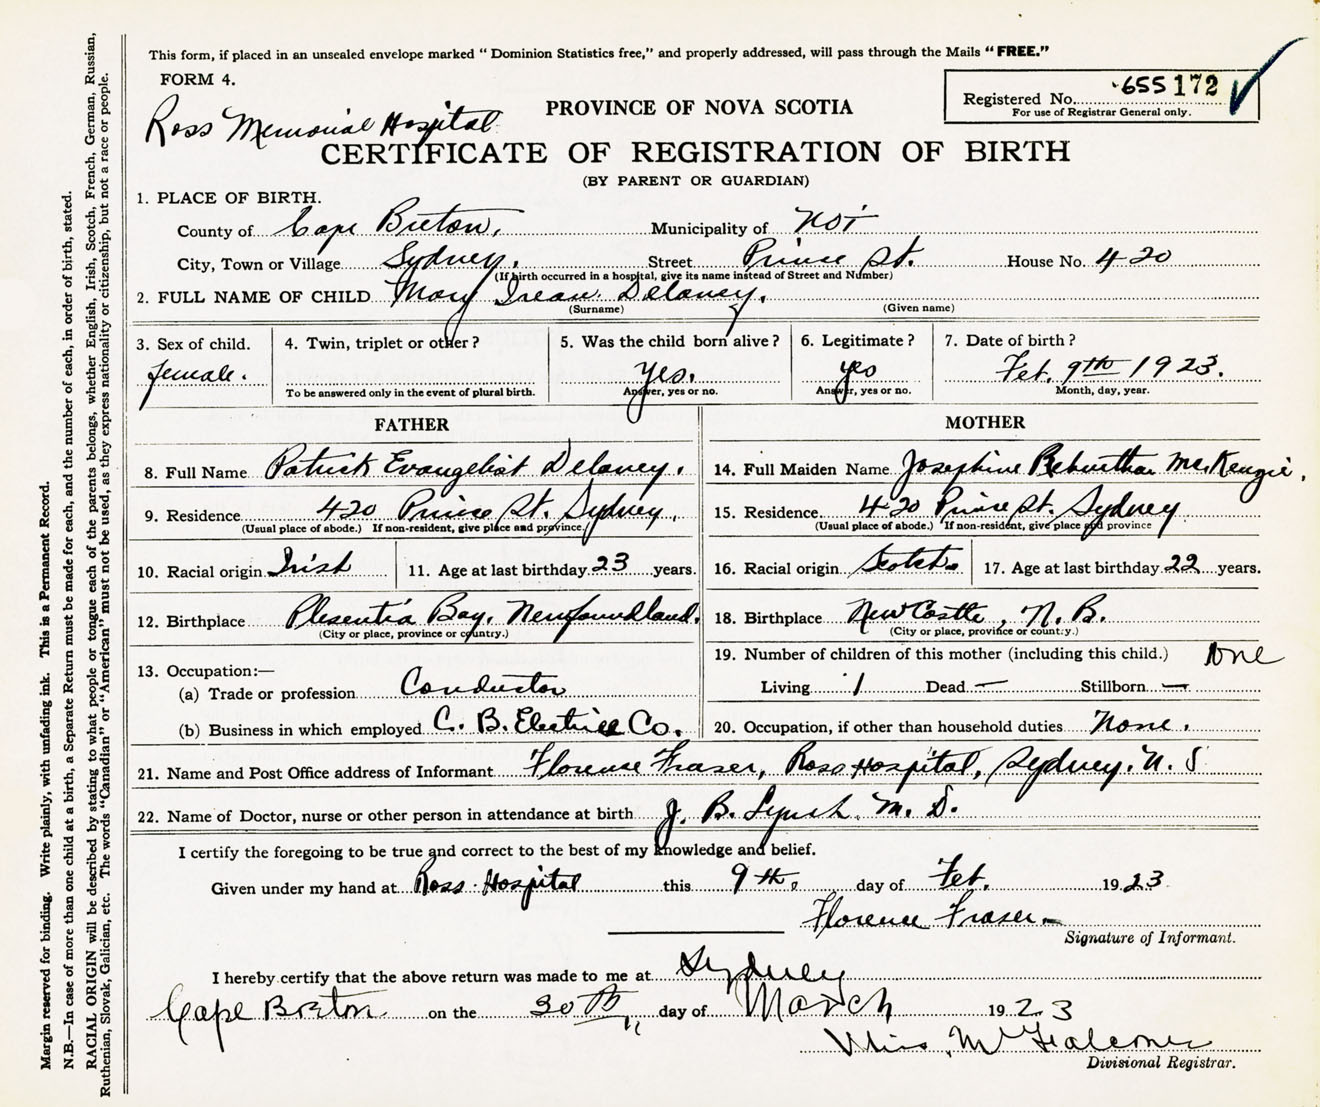 This form, if placed in an unsealed envelope marked "Dominion Statistics free," and properly addressed, will pass through the Mails "FREE."
FORM 4.
Registered No. 655172
For use of Registrar General only.
Ross Memorial Hospital
PROVINCE OF NOVA SCOTIA
CERTIFICATE OF REGISTRATION OF BIRTH
(BY PARENT OR GUARDIAN)
1. PLACE OF BIRTH.
County of Cape Breton, Municipality of Not
City, Town or Village Sydney. Street Prince St. House No. 420
(If birth occurred in a hospital, give its name instead of Street and Number)
2. FULL NAME OF CHILD Mary Irean Delaney.
(Surname) (Given name)
3. Sex of child. female.
4. Twin, triplet or other?
To be answered only in the event of plural birth.
5. Was the child born alive? Yes.
Answer, yes or no.
6. Legitimate? yes
Answer, yes or no.
7. Date of birth? Feb. 9th 1923.
Month, day, year.
FATHER
8. Full Name Patrick Evangelist Delaney.
9. Residence 420 Prince St. Sydney.
(Usual place of abode.) If non-resident, give place and province.
10. Racial origin Irish
11. Age at last birthday 23 years.
12. Birthplace Plesentia Bay, Newfoundland.
(City or place, province or country.)
13. Occupation:—
(a) Trade or profession Conductor
(b) Business in which employed C. B. Electric Co.
MOTHER
14. Full Maiden Name Josephine McKenzie.
15. Residence 420 Prince St. Sydney
(Usual place of abode.) If non-resident, give place and province
16. Racial origin Scotch.
17. Age at last birthday 22 years.
18. Birthplace NewCastle, N. B.
(City or place, province or country.)
19. Number of children of this mother (including this child.) One
Living 1 Dead — Stillborn —
20. Occupation, if other than household duties None.
21. Name and Post Office address of Informant Florence Fraser, Ross Hospital, Sydney. N. S
22. Name of Doctor, nurse or other person in attendance at birth J. B. Lynch. M. D.
I certify the foregoing to be true and correct to the best of my knowledge and belief.
Given under my hand at Ross Hospital this 9th. day of Feb. 1923
Florence Fraser
Signature of Informant.
I hereby certify that the above return was made to me at Sydney
Cape Breton on the 30th day of March 1923
Miss
Divisional Registrar.
Margin reserved for binding. Write plainly, with unfading ink. This is a Permanent Record.
N.B.—In case of more than one child at a birth, a Separate Return must be made for each, and the number of each, in order of birth, stated.
RACIAL ORIGIN will be described by stating to what people or tongue each of the parents belongs, whether English, Irish, Scotch, French, German, Russian,
Ruthenian, Slovak, Galician, etc. The words "Canadian" or "American" must not be used, as they express nationality or citizenship, but not a race or people.